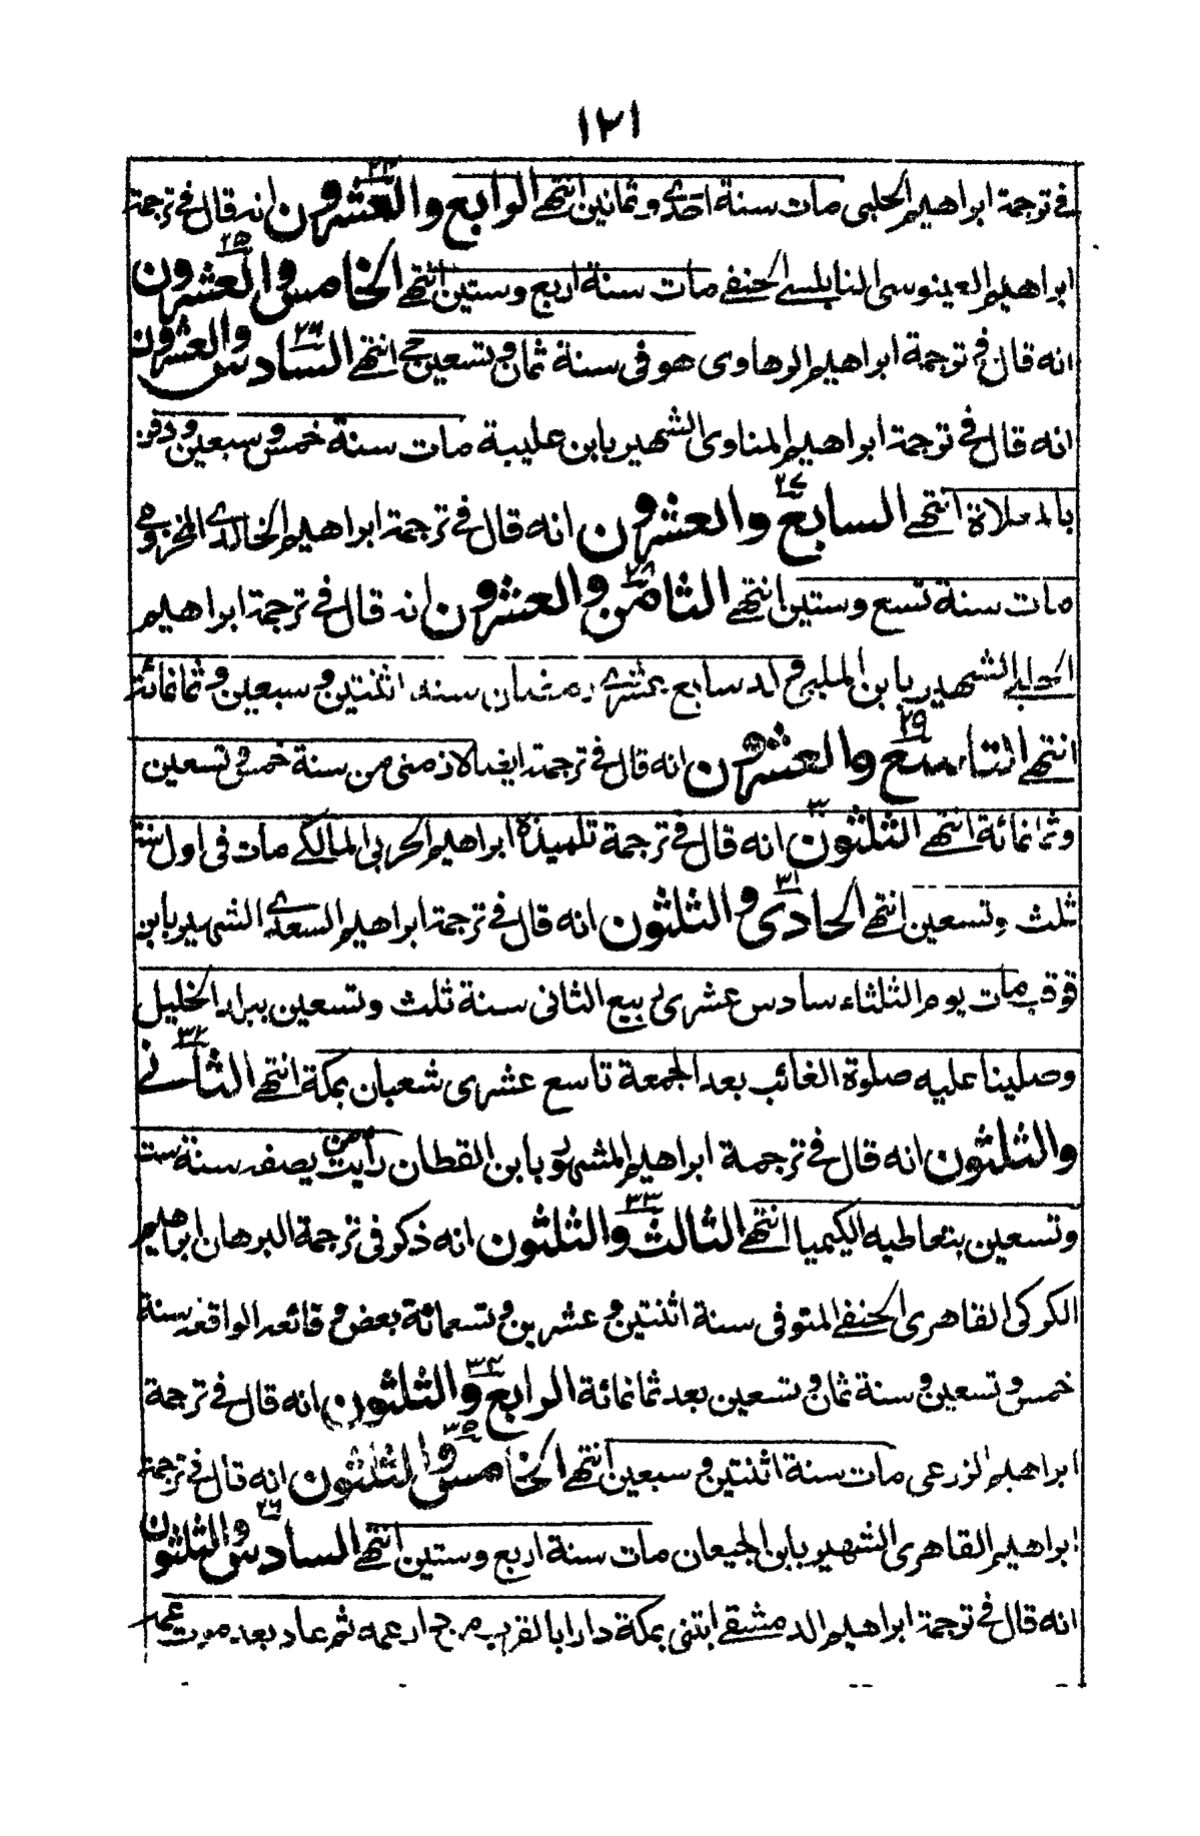 ١٢١
في ترجمة ابراهيم الحلبي مات سنة احدى وثمانين انتهى الرابع والعشرون ٢٤ انه قال في ترجمة
ابراهيم العينوسى النابلسي الحنفي مات سنة اربع وستين انتهى الخامس والعشرون ٢٥
انه قال في ترجمة ابراهيم الرهاوى هو فى سنة ثمان وتسعين حي انتهى السادس والعشرون ٢٦
انه قال في ترجمة ابراهيم المناوى الشهير بابن عليبة مات سنة خمس وسبعين ودفن
بالمعلاة انتهى السابع والعشرون ٢٧ انه قال في ترجمة ابراهيم الخالدي المخزومي
مات سنة تسع وستين انتهى الثامن والعشرون ٢٨ انه قال في ترجمة ابراهيم
الشهير بابن ولد سابع عشرى رمضان سنة اثنتين وسبعين وثمانمائة
انتهى التاسع والعشرون ٢٩ انه قال في ترجمة ايضا لاذمنى من سنة خمس وتسعين
وثمانمائة انتهى الثلثون ٣٠ انه قال في ترجمة تلميذه ابراهيم الحربى المالكي مات فى اول سنة
ثلث وتسعين انتهى الحادى والثلثون ٣١ انه قال في ترجمة ابراهيم السعدي الشهير بابن
قوقب مات يوم الثلثاء سادس عشرى ربيع الثانى سنة ثلث وتسعين ببلد الخليل
وصلينا عليه صلوة الغائب بعد الجمعة تاسع عشرى شعبان بمكة انتهى الثاني ٣٢
والثلثون انه قال في ترجمة ابراهيم المشهور بابن القطان رأيت من يصفه سنة ست
وتسعين بتعاطيه الكيميا انتهى الثالث والثلثون ٣٣ انه ذكر فى ترجمة البرهان ابراهيم
الكركى القاهرى الحنفي المتوفى سنة اثنتين وعشرين وتسعمائة بعض وقائعه الواقعة سنة
خمس وتسعين وسنة ثمان وتسعين بعد ثمانمائة الرابع والثلثون ٣٤ انه قال في ترجمة
ابراهيم الزرعى مات سنة اثنتين وسبعين انتهى الخامس والثلثون ٣٥ انه قال في ترجمة
ابراهيم القاهرى الشهير بابن الجيعان مات سنة اربع وستين انتهى السادس والثلثون ٣٦
انه قال في ترجمة ابراهيم الدمشقي ابتنى بمكة دارا بالقرب من دار عمه ثم عاد بعد موت عمه